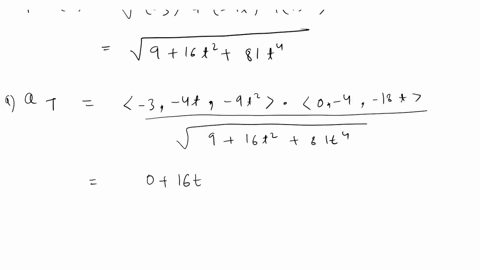 = √(9 + 16t² + 81t⁴)
a) a_T = <-3, -4t, -9t²> • <0, -4, -18t> / √(9 + 16t² + 81t⁴)
= 0 + 16t